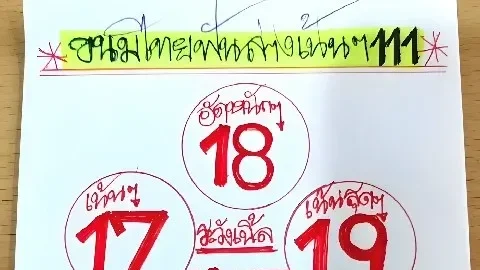 ขนมไทยฟันล่างเน้นๆ 111
อัดหนักๆ
18
เน้นๆ
17
ระวังเบิ้ล
เน้นสุดๆ
19